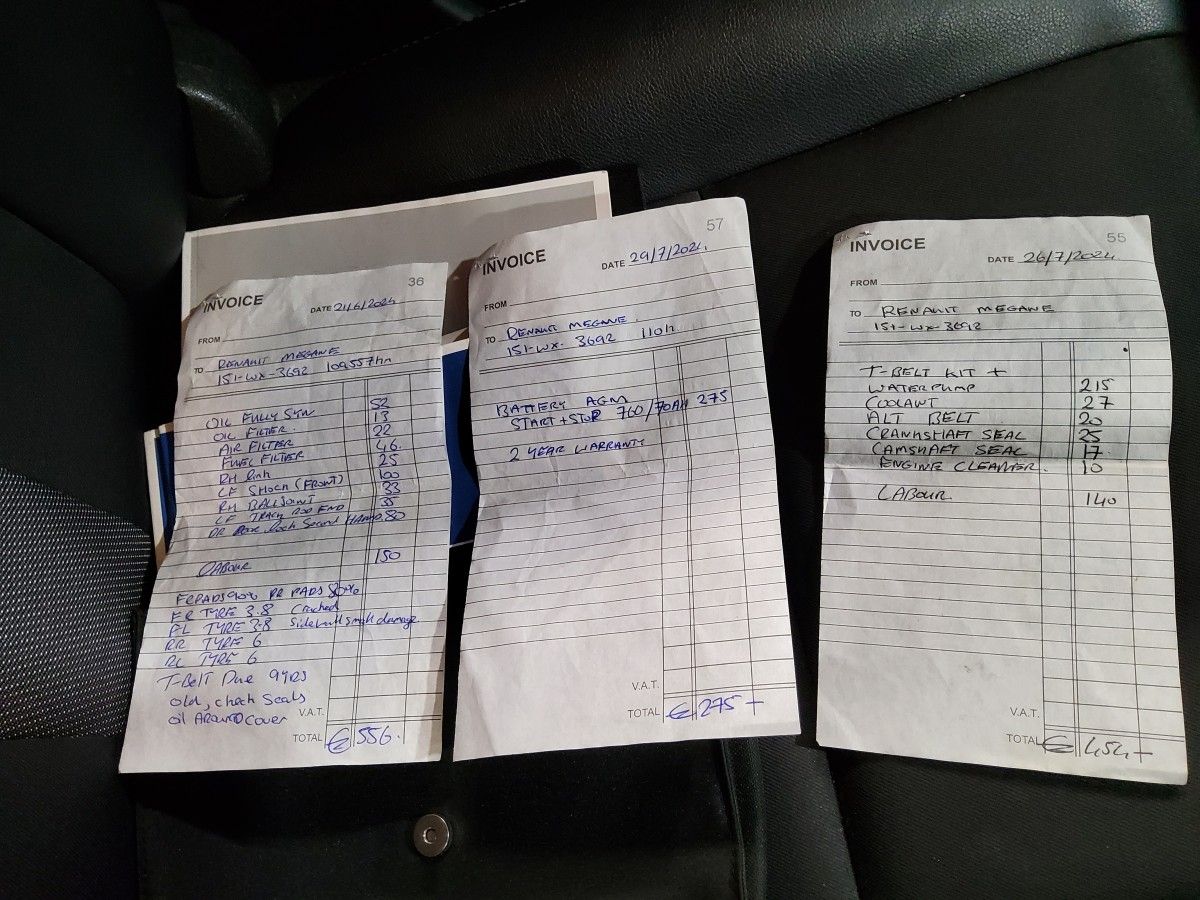 36
INVOICE
DATE 21/6/2024
FROM
TO RENAULT MEGANE
151-WX-3692 109557km
OIL FULLY SYN 52
OIL FILTER. 13
AIR FILTER 22
FUEL FILTER 46
RH link 25
LF SHOCK (FRONT) 100
RH BALLJOINT 33
LF TRACK ROD END 35
DR lock Second HAND 80
LABOUR 150
FR PADS 90% RR PADS 80%
FR TYRE 3.8 Cracked
FL TYRE 3.8 Sidewall small damage
RR TYRE 6
RL TYRE 6
T-BELT Due 9YRS
old, check Seals
oil AROUND COVER
V.A.T.
TOTAL € 556.
57
INVOICE
DATE 29/7/2024.
FROM
TO RENAULT MEGANE
151-WX-3692 110h
BATTERY AGM
START+STOP 760/70AH 275
2 YEAR WARRANTY
V.A.T.
TOTAL € 275+
55
INVOICE
DATE 26/7/2024
FROM
TO RENAULT MEGANE
151-WX-3692
T-BELT KIT +
WATERPUMP 215
COOLANT 27
ALT BELT 20
CRANKSHAFT SEAL 25
CAMSHAFT SEAL 17
ENGINE CLEANER. 10
LABOUR 140
V.A.T.
TOTAL € 454+
C